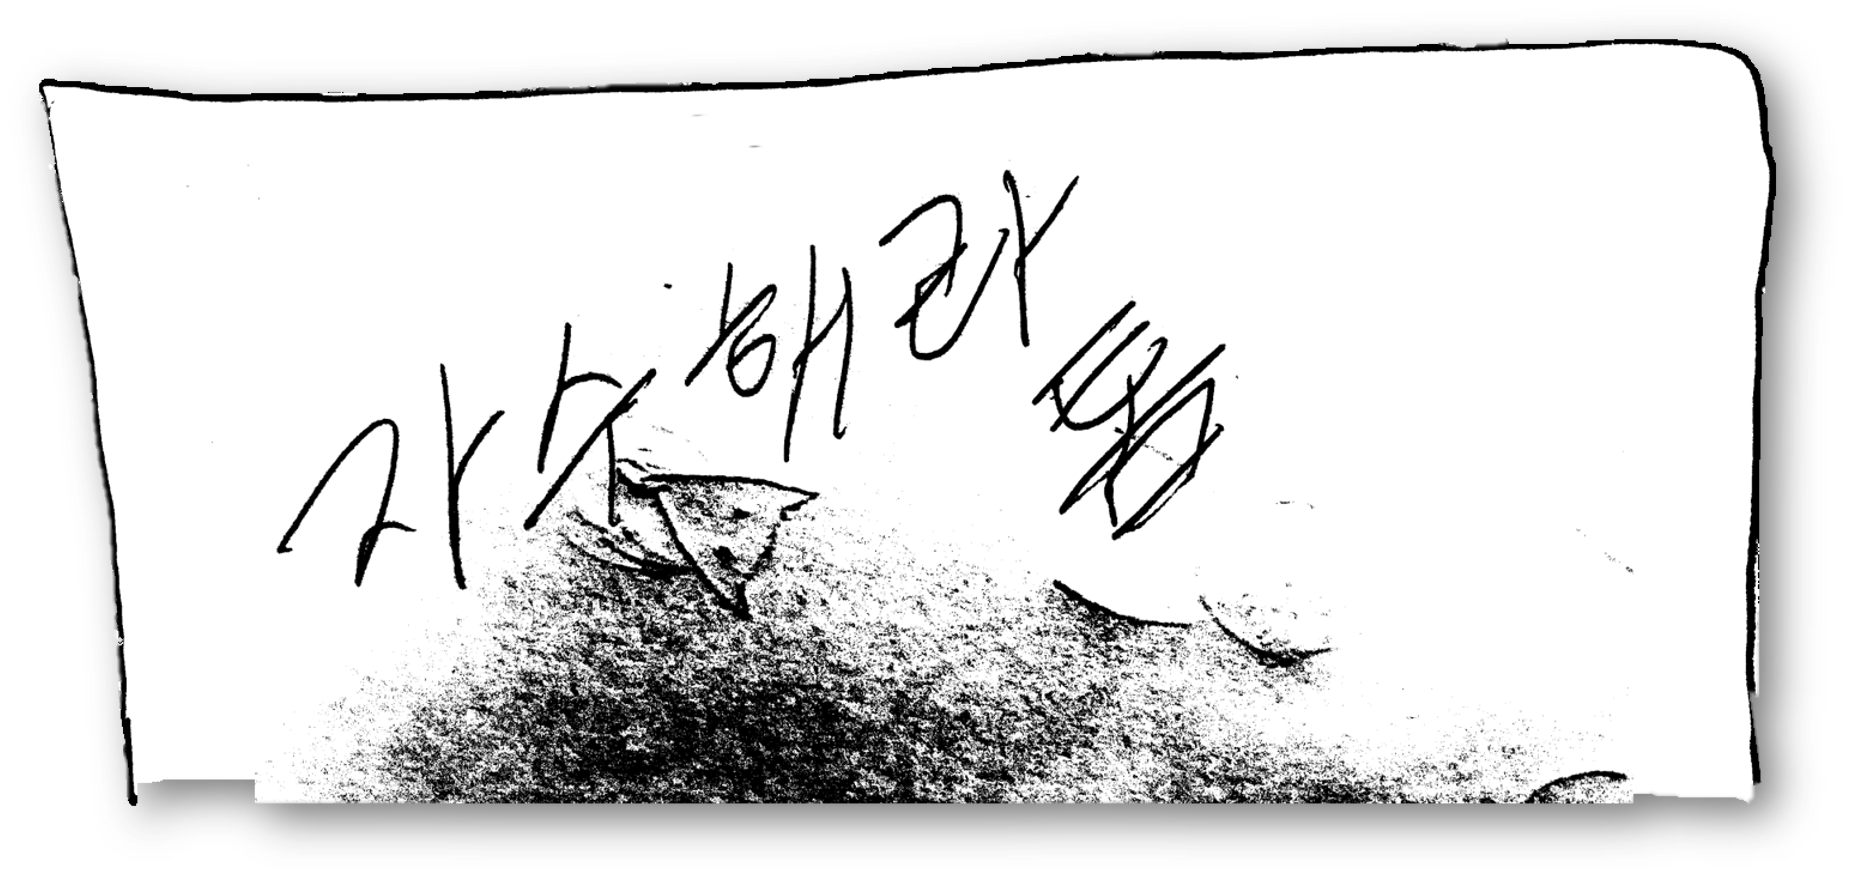 자수해라 톰